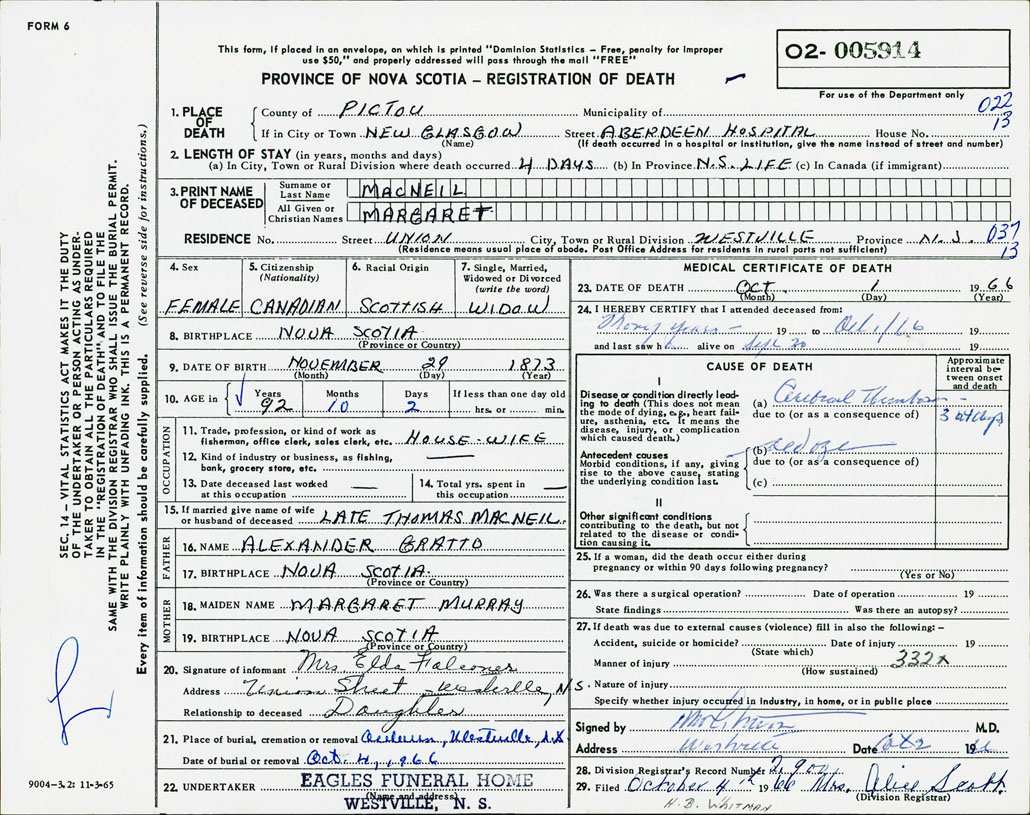 FORM 6
This form, if placed in an envelope, on which is printed "Dominion Statistics – Free, penalty for improper
use $50," and properly addressed will pass through the mail "FREE"
PROVINCE OF NOVA SCOTIA – REGISTRATION OF DEATH
02- 005914
For use of the Department only
022
13
1. PLACE OF DEATH
County of PICTOU Municipality of
If in City or Town NEW GLASGOW Street ABERDEEN HOSPITAL House No.
(Name) (If death occurred in a hospital or institution, give the name instead of street and number)
2. LENGTH OF STAY (in years, months and days)
(a) In City, Town or Rural Division where death occurred 4 DAYS (b) In Province N.S. LIFE (c) In Canada (if immigrant)
3. PRINT NAME OF DECEASED
Surname or Last Name MACNEIL
All Given or Christian Names MARGARET
RESIDENCE No. Street UNION City, Town or Rural Division WESTVILLE Province N.S. 037
(Residence means usual place of abode. Post Office Address for residents in rural parts not sufficient) 13
4. Sex FEMALE
5. Citizenship (Nationality) CANADIAN
6. Racial Origin SCOTTISH
7. Single, Married, Widowed or Divorced (write the word) WIDOW
8. BIRTHPLACE NOVA SCOTIA
(Province or Country)
9. DATE OF BIRTH NOVEMBER 29 1873
(Month) (Day) (Year)
10. AGE in Years 92 Months 10 Days 2 If less than one day old hrs. or min.
OCCUPATION
11. Trade, profession, or kind of work as
fisherman, office clerk, sales clerk, etc. HOUSE-WIFE
12. Kind of industry or business, as fishing,
bank, grocery store, etc.
13. Date deceased last worked
at this occupation
14. Total yrs. spent in
this occupation
15. If married give name of wife
or husband of deceased LATE THOMAS MACNEIL
FATHER
16. NAME ALEXANDER GRATTO
17. BIRTHPLACE NOVA SCOTIA
(Province or Country)
MOTHER
18. MAIDEN NAME MARGARET MURRAY
19. BIRTHPLACE NOVA SCOTIA
(Province or Country)
20. Signature of informant Mrs. Elda Falconer
Address Union Street Westville, N.S.
Relationship to deceased Daughter
21. Place of burial, cremation or removal Auburn, Westville, N.S.
Date of burial or removal Oct. 4, 1966
22. UNDERTAKER EAGLES FUNERAL HOME
(Name and address)
WESTVILLE, N. S.
MEDICAL CERTIFICATE OF DEATH
23. DATE OF DEATH OCT. 1 1966
(Month) (Day) (Year)
24. I HEREBY CERTIFY that I attended deceased from:
Many years – 19 to Oct 1/66 19
and last saw h alive on Sept 30 19
CAUSE OF DEATH
Approximate interval between onset and death
I
Disease or condition directly leading to death (This does not mean the mode of dying, e.g., heart failure, asthenia, etc. It means the disease, injury, or complication which caused death.)
(a) Cerebral Thrombosis
due to (or as a consequence of) 3 days
Antecedent causes
Morbid conditions, if any, giving rise to the above cause, stating the underlying condition last.
(b)
due to (or as a consequence of)
(c)
II
Other significant conditions
contributing to the death, but not related to the disease or condition causing it.
25. If a woman, did the death occur either during
pregnancy or within 90 days following pregnancy?
(Yes or No)
26. Was there a surgical operation? Date of operation 19
State findings Was there an autopsy?
27. If death was due to external causes (violence) fill in also the following:–
Accident, suicide or homicide? Date of injury 19
(State which)
Manner of injury 332x
(How sustained)
Nature of injury
Specify whether injury occurred in industry, in home, or in public place
Signed by M.D.
Address Westville Date Oct 2 1966
28. Division Registrar's Record Number
29. Filed October 4th 1966 Mrs. Alice Scott
(Division Registrar)
H.B. WHITMAN
SEC. 14 – VITAL STATISTICS ACT MAKES IT THE DUTY
OF THE UNDERTAKER OR PERSON ACTING AS UNDER-
TAKER TO OBTAIN ALL THE PARTICULARS REQUIRED
IN THE "REGISTRATION OF DEATH" AND TO FILE THE
SAME WITH THE DIVISION REGISTRAR WHO SHALL ISSUE THE BURIAL PERMIT.
WRITE PLAINLY WITH UNFADING INK. THIS IS A PERMANENT RECORD.
Every item of information should be carefully supplied. (See reverse side for instructions.)
9004-3.2: 11-3-65